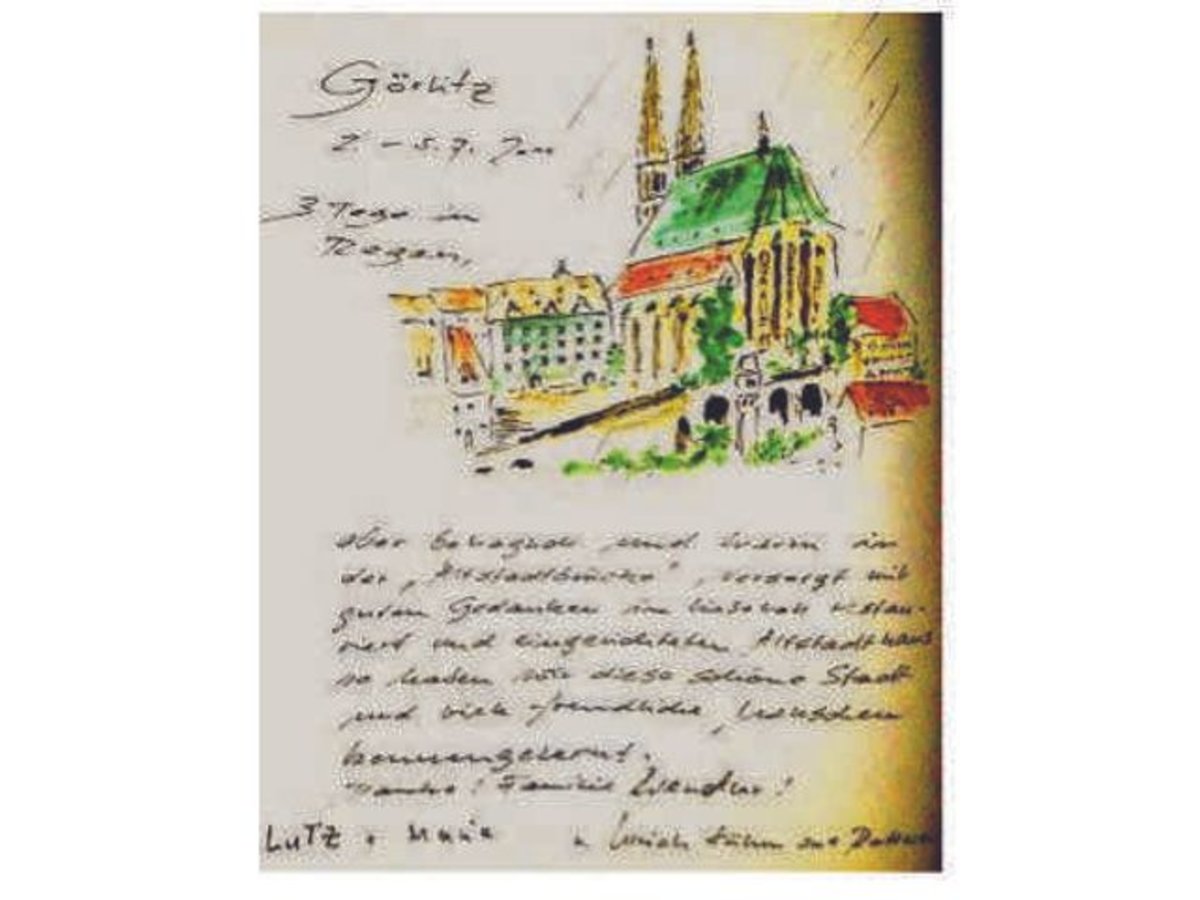 Görlitz
2. – 5. 7.
3 Tage in
Regen,
aber behaglich und warm in
der „Altstadtbrücke", versorgt mit
guten Gedanken im restau-
riert und eingerichteten Altstadthaus
so haben wir diese schöne Stadt
und viele freundliche Menschen
kennengelernt.
Danke! Familie
Lutz + Maria
aus